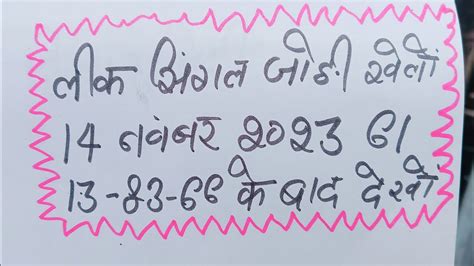 लीक सिंगल जोडी खेलों
14 नवंबर 2023 61
13-83-66 के बाद देखों